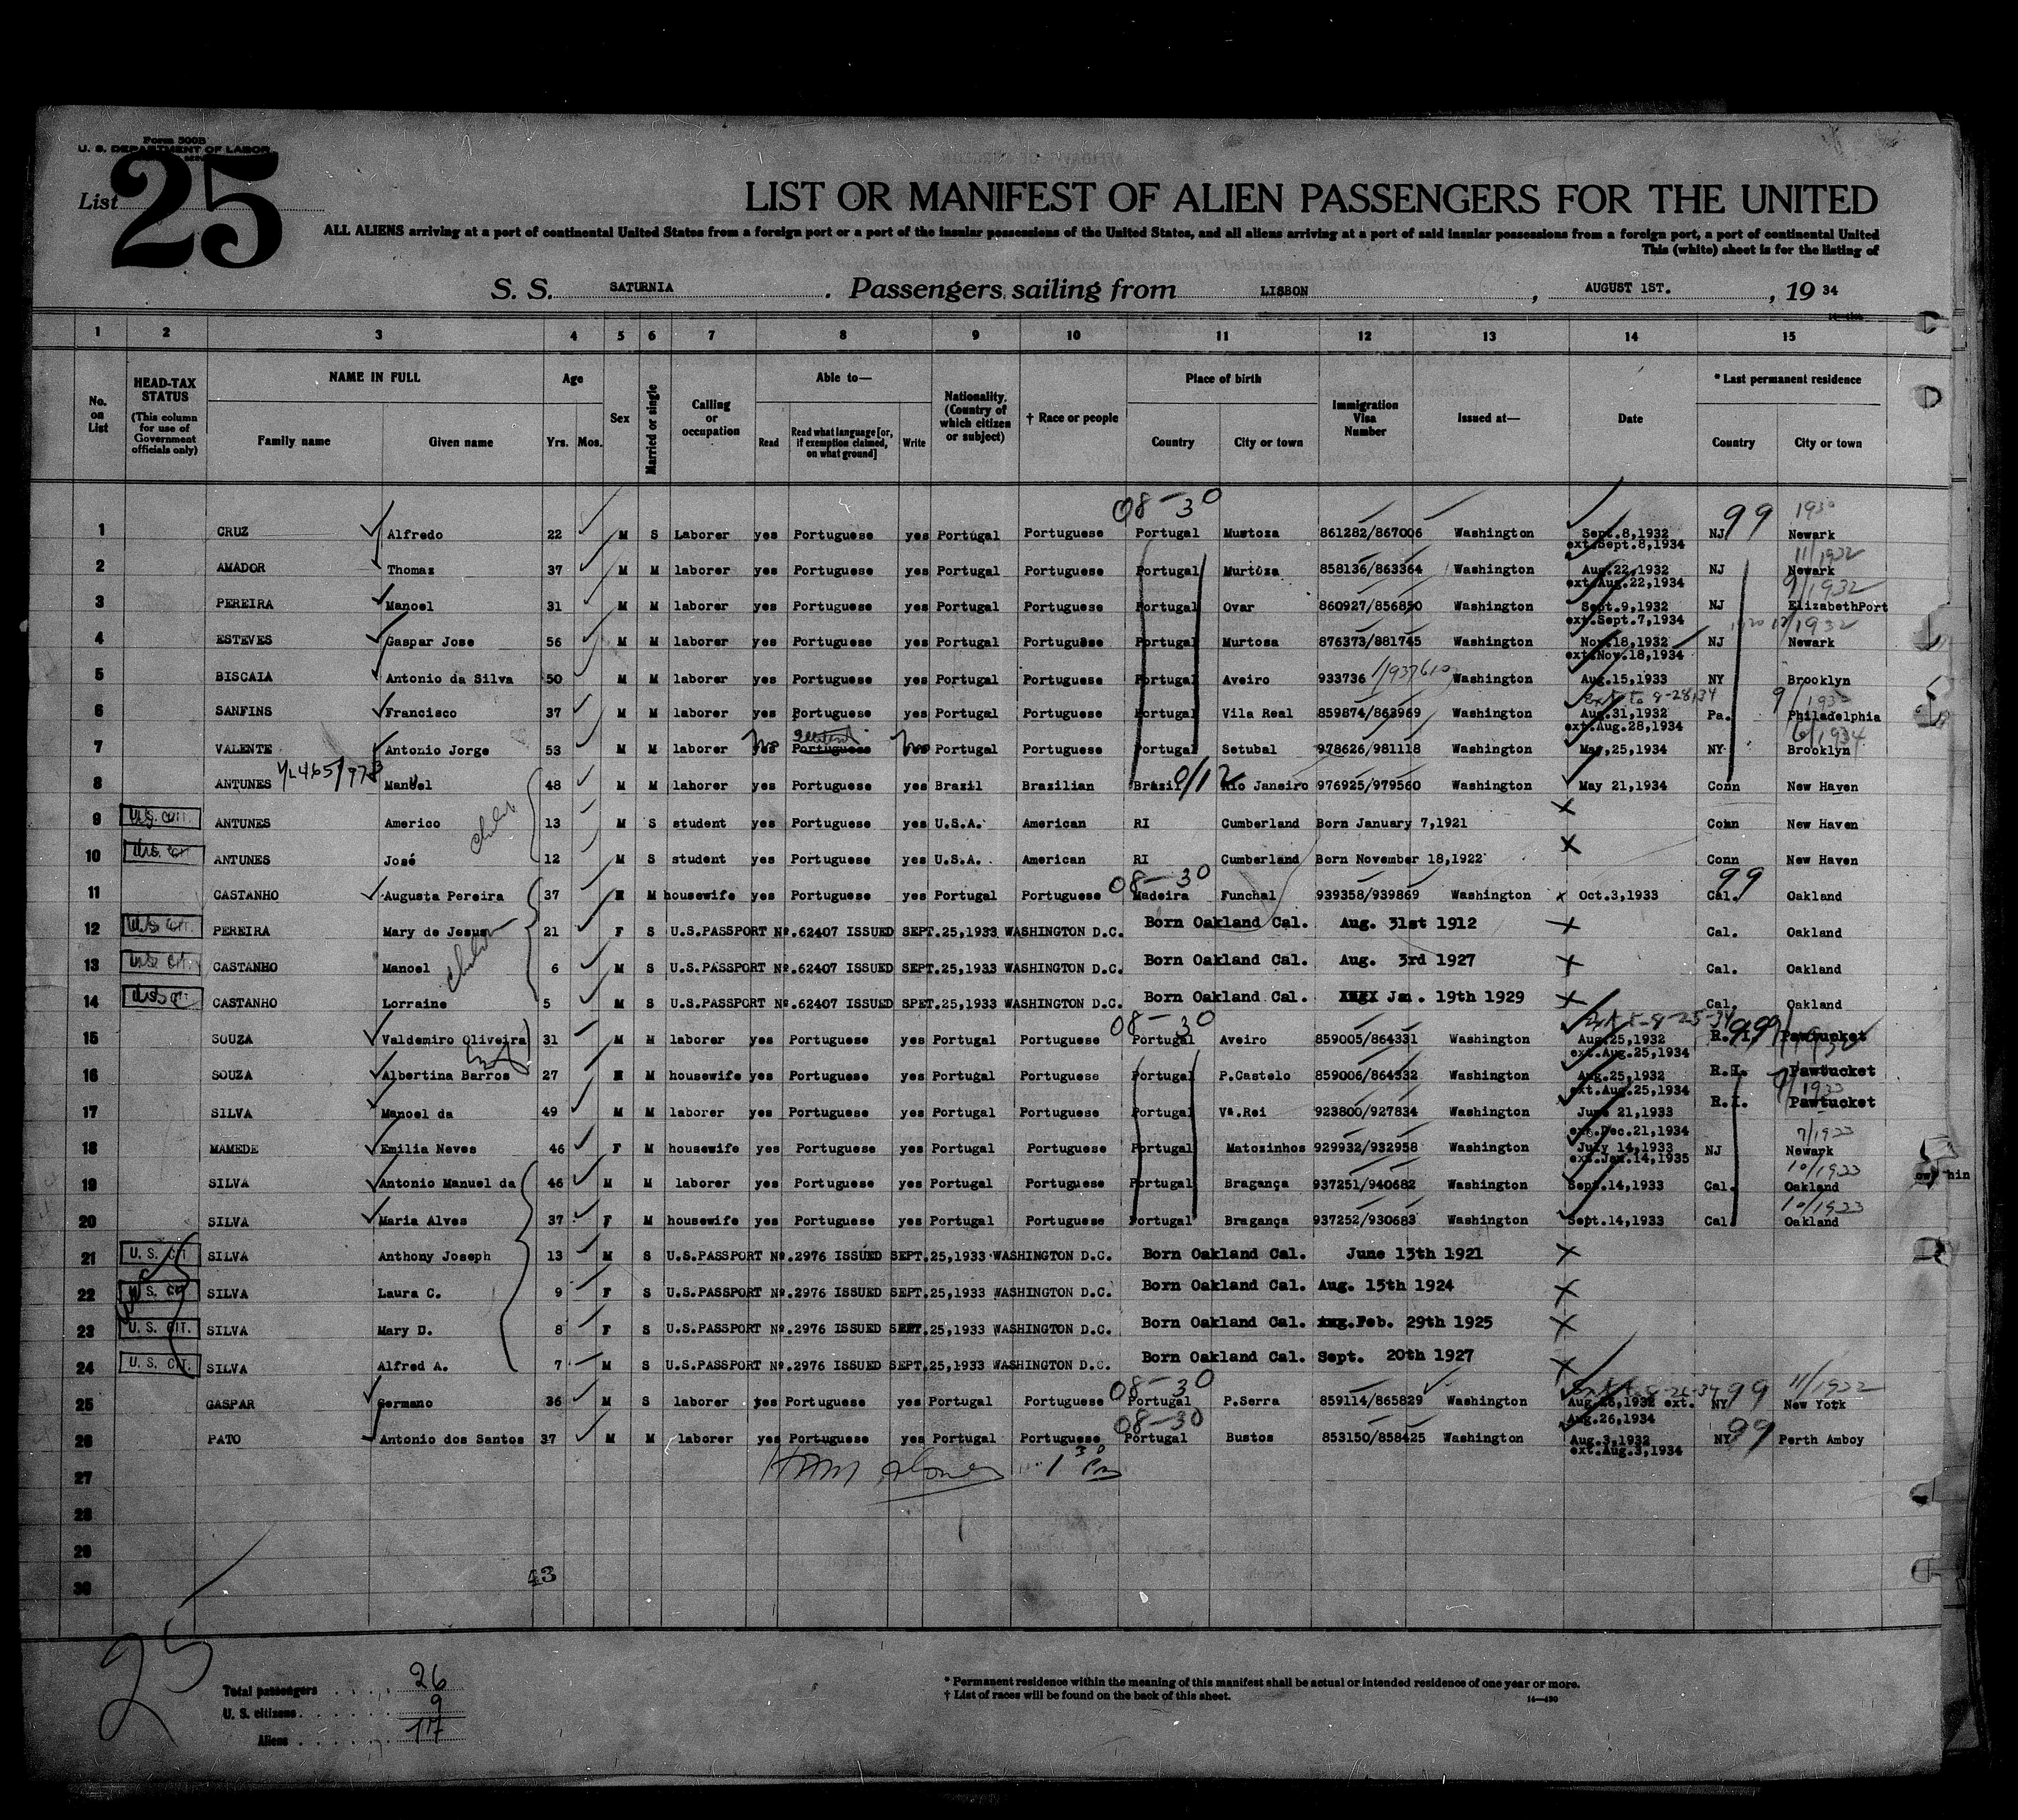 Form 500B
U. S. DEPARTMENT OF LABOR
List 25
LIST OR MANIFEST OF ALIEN PASSENGERS FOR THE UNITED
ALL ALIENS arriving at a port of continental United States from a foreign port or a port of the insular possessions of the United States, and all aliens arriving at a port of said insular possessions from a foreign port, a port of continental United
This (white) sheet is for the listing of
S. S. SATURNIA. Passengers sailing from LISBON, AUGUST 1ST., 19 34
1 2 3 4 5 6 7 8 9 10 11 12 13 14 15
No. on List
HEAD-TAX STATUS (This column for use of Government officials only)
NAME IN FULL
Family name Given name
Age
Yrs. Mos.
Sex
Married or single
Calling or occupation
Able to—
Read Read what language [or, if exemption claimed, on what ground] Write
Nationality. (Country of which citizen or subject)
† Race or people
Place of birth
Country City or town
Immigration Visa Number
Issued at—
Date
* Last permanent residence
Country City or town
08-30 99
1 CRUZ Alfredo 22 M S Laborer yes Portuguese yes Portugal Portuguese Portugal Mustoza 861282/867006 Washington Sept.8,1932 NJ Newark
ext.Sept.8,1934 11/1932
2 AMADOR Thomaz 37 M M laborer yes Portuguese yes Portugal Portuguese Portugal Murtoza 858136/863364 Washington Aug.22,1932 NJ Newark
ext.Aug.22,1934 9/1932
3 PEREIRA Manoel 31 M M laborer yes Portuguese yes Portugal Portuguese Portugal Ovar 860927/856850 Washington Sept.9,1932 NJ ElizabethPort
ext.Sept.7,1934 12/1932
4 ESTEVES Gaspar Jose 56 M M laborer yes Portuguese yes Portugal Portuguese Portugal Murtosa 876373/881745 Washington Nov.18,1932 NJ Newark
ext.Nov.18,1934
5 BISCAIA Antonio da Silva 50 M M laborer yes Portuguese yes Portugal Portuguese Portugal Aveiro 933736 /937610 Washington Aug.15,1933 NY Brooklyn
6 SANFINS Francisco 37 M M laborer yes Portuguese yes Portugal Portuguese Portugal Vila Real 859874/863969 Washington Aug.31,1932 Pa. Philadelphia
ext.Aug.28,1934 6/1934
7 VALENTE Antonio Jorge 53 M M laborer no Portuguese no Portugal Portuguese Portugal Setubal 978626/981118 Washington May,25,1934 NY Brooklyn
8 ANTUNES Manuel 48 M M laborer yes Portuguese yes Brazil Brazilian Brazil Rio Janeiro 976925/979560 Washington May 21,1934 Conn New Haven
9 U.S. CIT. ANTUNES Americo 13 M S student yes Portuguese yes U.S.A. American RI Cumberland Born January 7,1921 Conn New Haven
10 U.S. CIT. ANTUNES José 12 M S student yes Portuguese yes U.S.A. American RI Cumberland Born November 18,1922 Conn New Haven
08-30 99
11 CASTANHO Augusta Pereira 37 M housewife yes Portuguese yes Portugal Portuguese Madeira Funchal 939358/939869 Washington x Oct.3,1933 Cal. Oakland
12 U.S. CIT. PEREIRA Mary de Jesus 21 F S U.S.PASSPORT Nº.62407 ISSUED SEPT.25,1933 WASHINGTON D.C. Born Oakland Cal. Aug. 31st 1912 Cal. Oakland
13 U.S. CIT. CASTANHO Manoel 6 M S U.S.PASSPORT Nº.62407 ISSUED SEPT.25,1933 WASHINGTON D.C. Born Oakland Cal. Aug. 3rd 1927 Cal. Oakland
14 U.S. CIT. CASTANHO Lorraine 5 M S U.S.PASSPORT Nº.62407 ISSUED SPET.25,1933 WASHINGTON D.C. Born Oakland Cal. Jan. 19th 1929 Cal. Oakland
08-30 99
15 SOUZA Valdemiro Oliveira 31 M M laborer yes Portuguese yes Portugal Portuguese Portugal Aveiro 859005/864331 Washington Aug.25,1932 R.I. Pawtucket
ext.Aug.25,1934
16 SOUZA Albertina Barros 27 M housewife yes Portuguese yes Portugal Portuguese Portugal P.Castelo 859006/864332 Washington Aug.25,1932 R.I. Pawtucket
ext.Aug.25,1934
17 SILVA Manoel da 49 M M laborer yes Portuguese yes Portugal Portuguese Portugal Vª.Rei 923800/927834 Washington June 21,1933 R.I. Pawtucket
ext.Dec.21,1934 7/1933
18 MAMEDE Emilia Neves 46 F M housewife yes Portuguese yes Portugal Portuguese Portugal Matozinhos 929932/932958 Washington July 14,1933 NJ Newark
ext.Jan.14,1935 10/1933
19 SILVA Antonio Manuel da 46 M M laborer yes Portuguese yes Portugal Portuguese Portugal Bragança 937251/940682 Washington Sept.14,1933 Cal. Oakland
10/1933
20 SILVA Maria Alves 37 F M housewife yes Portuguese yes Portugal Portuguese Portugal Bragança 937252/930683 Washington Sept.14,1933 Cal. Oakland
21 U. S. CIT. SILVA Anthony Joseph 13 M S U.S.PASSPORT Nº.2976 ISSUED SEPT.25,1933 WASHINGTON D.C. Born Oakland Cal. June 13th 1921
22 U. S. CIT. SILVA Laura C. 9 F S U.S.PASSPORT Nº.2976 ISSUED SEPT.25,1933 WASHINGTON D.C. Born Oakland Cal. Aug. 15th 1924
23 U. S. CIT. SILVA Mary D. 8 F S U.S.PASSPORT Nº.2976 ISSUED SEPT.25,1933 WASHINGTON D.C. Born Oakland Cal. Feb. 29th 1925
24 U. S. CIT. SILVA Alfred A. 7 M S U.S.PASSPORT Nº.2976 ISSUED SEPT.25,1933 WASHINGTON D.C. Born Oakland Cal. Sept. 20th 1927
08-30 99
25 GASPAR Germano 36 M S laborer yes Portuguese yes Portugal Portuguese Portugal P.Serra 859114/865829 Washington Aug.26,1932 ext. NY New York
08-30 Aug.26,1934 99
26 PATO Antonio dos Santos 37 M M laborer yes Portuguese yes Portugal Portuguese Portugal Bustos 853150/858425 Washington Aug.3,1932 NY Perth Amboy
ext.Aug.3,1934
27
28
29
30
43
25
Total passengers 26
U. S. citizens 9
Aliens 17
* Permanent residence within the meaning of this manifest shall be actual or intended residence of one year or more.
† List of races will be found on the back of this sheet.
14—430